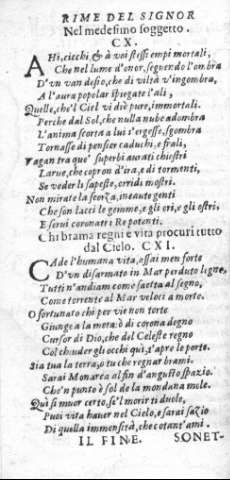 RIME DEL SIGNOR
Nel medesimo soggetto.
CX.
AHi, ciechi, & à voi stessi empi mortali,
Che nel lume d'onor, seguendo l'ombra
D'un van desio, che di viltà v'ingombra,
A l'aura popolar spiegate l'ali,
Quelle, che'l Ciel vi diè pure, immortali.
Perche dal Sol, che nulla nube adombra
L'anima scorta a lui s'ergesse, sgombra
Tornasse di pensier caduchi, e frali,
Vagan tra que' superbi aurati chiostri
Larve, che copron d'ira, e di tormenti,
Se veder li sapeste, orridi mostri.
Non mirate la scorza, incaute genti
Che son lacci le gemme, e gli ori, e gli ostri,
E servi coronati e Re potenti.
Chi brama regni e vita procuri tutto
dal Cielo. CXI.
CAde l'humana vita, assai men forte
D'un disarmato in Mar perduto legno,
Tutti n'andiam come saetta al segno,
Come torrente al Mar veloci a morte.
O fortunato chi per vie non torte
Giunge a la meta: ò di corona degno
Cursor di Dio, che del Celeste regno
Col chiuder gli occhi quì, t'apro le porte.
Sia tua la terra, o tu che regnar brami.
Sarai Monarca al fin d'angusto spazio.
Che'n punto è sol de la mondana mole.
Quì si muor certo, se'l morir ti duole,
Puoi vita haver nel Cielo, e sarai sazio
Di quella immensità, che cotant'ami.
IL FINE. SONET-